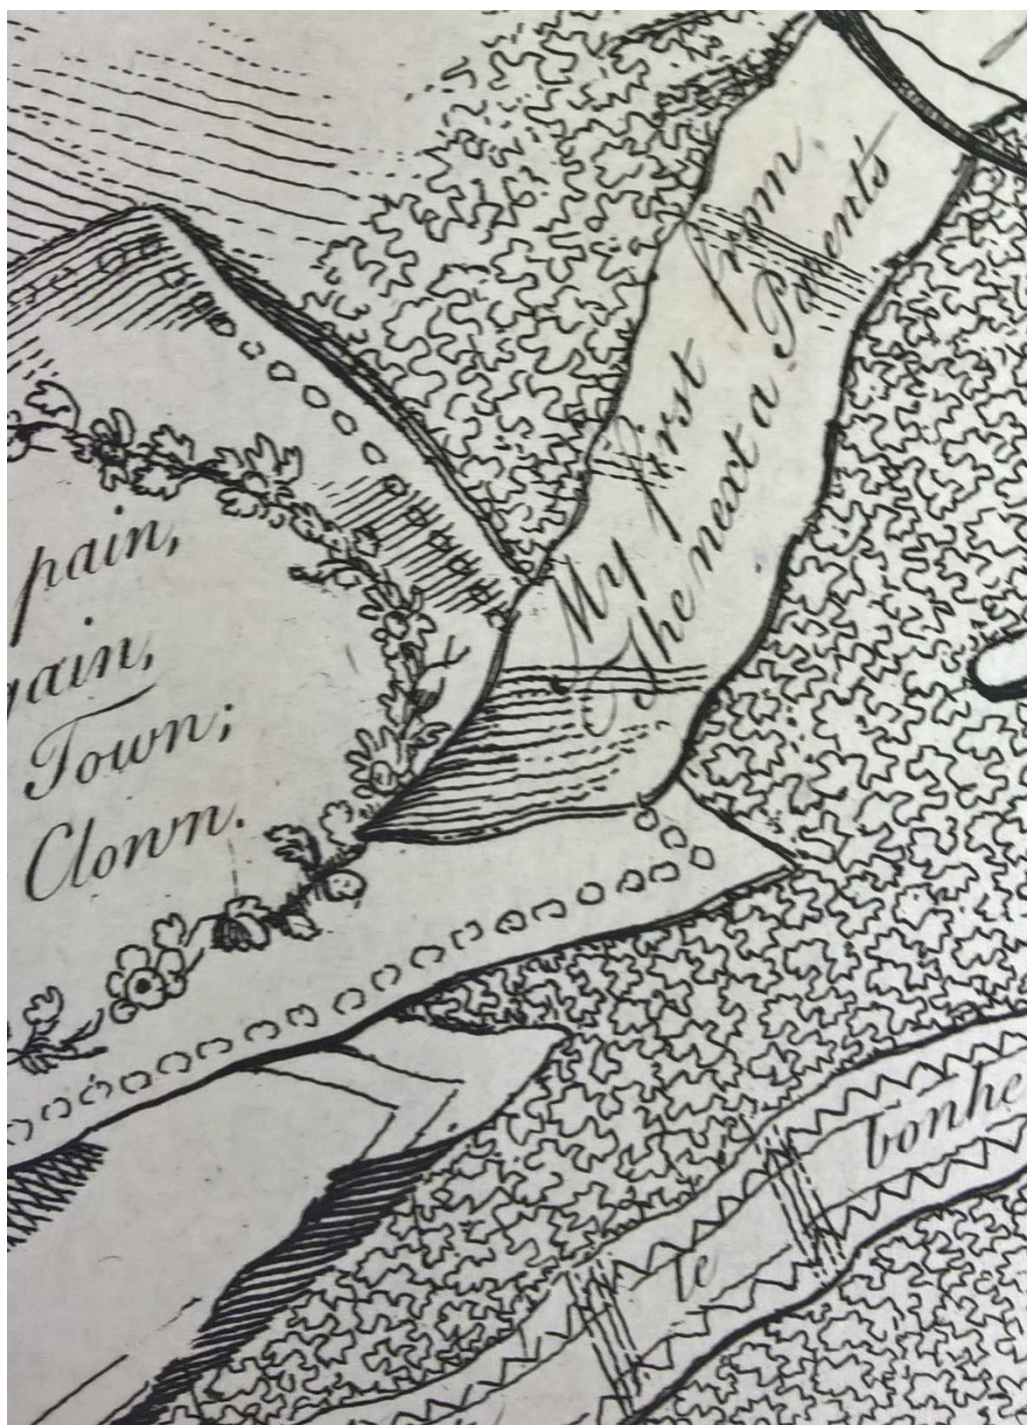 pain,
ain,
Town;
Clown.
My first from
The next a Parent's
le bonhe